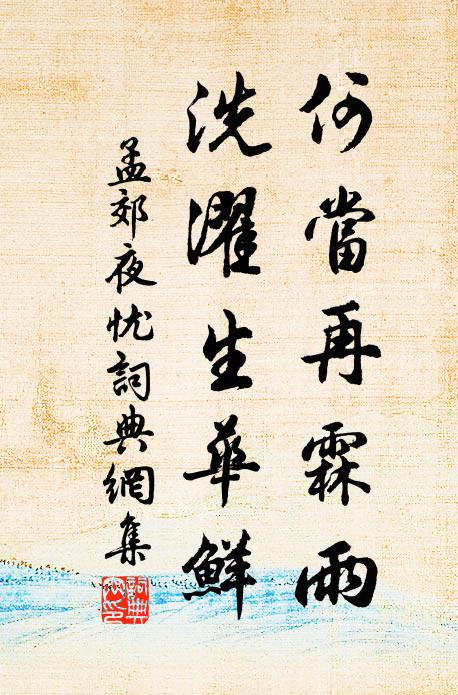 何當再霖雨
洗濯生華鮮
孟郊夜忧詞典網集